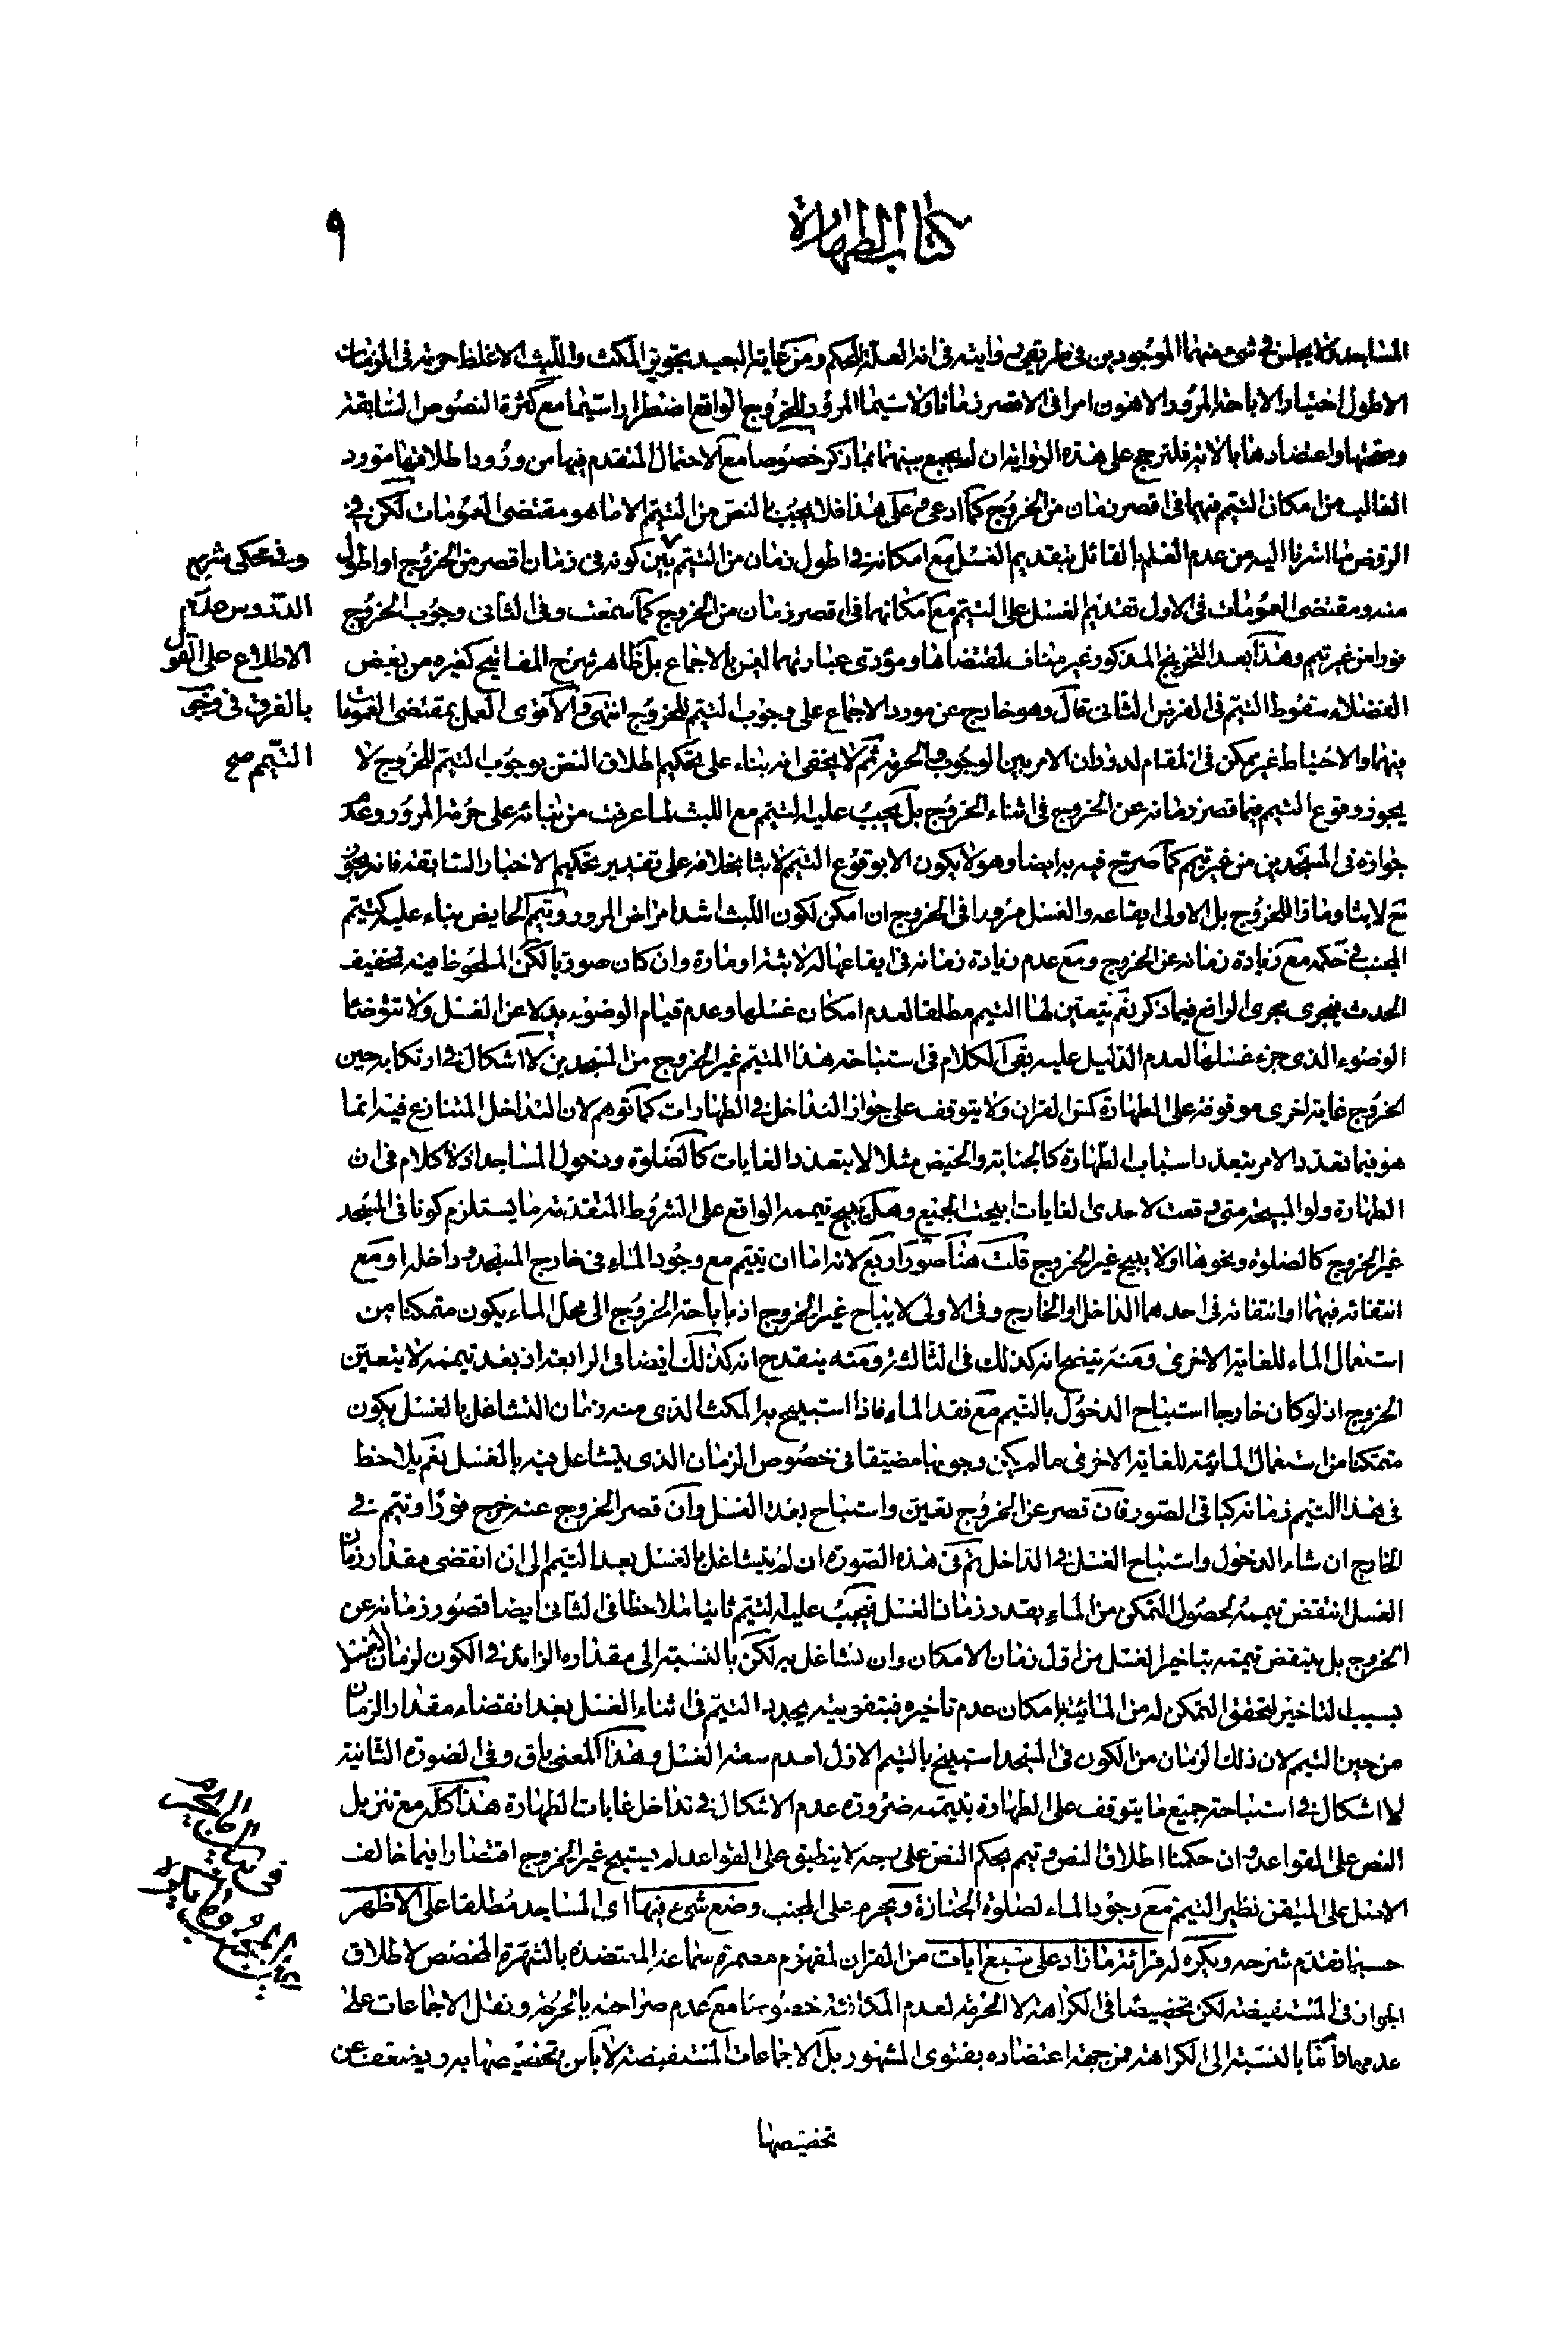 كتاب الطهارة
٩
المساجد ولا يجلس في شئ منهما الموجودين في طريقي روايته في انه العلة للحكم ومن غاية البعيد تجويز المكث واللبث الاغلظ حرمة في الزمان
الاطول اختيارا لاباحة المرور الاهون امرا في الاقصر زمانا ولا سيما المرور للخروج الواقع اضطرارا سيما مع كثرة النصوص السابقة
وصحتها واعتضادها بالاية فلترجح على هذه الرواية ان لم يجمع بينهما بما ذكر خصوصا مع الاحتمال المتقدم فيها من ورود اطلاقها مورد
الغالب من امكان التيمم فيهما في اقصر زمان من الخروج كما ادعي وعلى هذا فلا يجب بالنص من التيمم الا ما هو مقتضى العمومات لكن في
الروض ما اشرنا اليه من عدم العلم بالقائل بتقديم الغسل مع امكانه في اطول زمان من التيمم بين كونه في زمان اقصر من الخروج او اطول
منه ومقتضى العمومات في الاول تقديم الغسل على التيمم مع امكانهما في اقصر زمان من الخروج كما سمعت وفي الثاني وجوب الخروج
فورا من غير تيمم وهذا بعد التخريج المذكور غير مناف لمقتضاها ومؤدى عبارتهما ليس بالاجماع بل ظاهر شرح المفاتيح كغيره من بعض
الفضلاء سقوط التيمم في الفرض الثاني قال وهو خارج عن مورد الاجماع على وجوب التيمم للخروج انتهى والاقوى العمل بمقتضى العمومات
فيهما والاحتياط غير ممكن في المقام لدوران الامر بين الوجوب والحرمة ثم لا يخفى انه بناء على تحكيم اطلاق النص بوجوب التيمم للخروج لا
يجوز وقوع التيمم فيما قصر زمانه عن الخروج في اثناء الخروج بل يجب عليه التيمم مع اللبث لما عرفت من بنائه على حرمة المرور وعدم
جوازه في المسجدين من غير تيمم كما صرح فيه به ايضا وهو لا يكون الا بوقوع التيمم لابثا بخلافه على تقدير تحكيم الاخبار السابقة فانه يجوز
ح لابثا ومارا للخروج بل الاولى ايقاعه والغسل مرورا في الخروج ان امكن لكون اللبث اشد من اخف المرور وتيمم الحايض بناء عليه كتيمم
الجنب في حكمه مع زيادة زمانه عن الخروج ومع عدم زيادة زمانه في ايقاعها له لابثة او مارة وان كان صوريا لكن الملحوظ فيه تخفيف
الحدث فيجري مجرى الرافع فيما ذكر نعم يتعين لها التيمم مطلقا لعدم امكان غسلها وعدم قيام الوضوء بدلا عن الغسل ولا تتوضا
الوضوء الذي جزء غسلها لعدم الدليل عليه بقي الكلام في استباحة هذا المتيمم غير الخروج من المسجدين لا اشكال في ارتكابه حين
الخروج غاية اخرى موقوفة على الطهارة كمس القران ولا يتوقف على جواز التداخل في الطهارات كما توهم لان التداخل المتنازع فيه انما
هو فيما تعدد الامر بتعدد اسباب الطهارة كالجنابة والحيض مثلا لا بتعدد الغايات كالصلوة ودخول المساجد اذ لا كلام في ان
الطهارة ولو المبيحة متى وقعت لاحدى الغايات ابيحت الجميع وهل يبيح تيممه الواقع على الشروط المتقدمة ما يستلزم كونا في المسجد
غير الخروج كالصلوة ونحوها او لا يبيح غير الخروج قلت هنا صور اربع لانه اما ان يتيمم مع وجود الماء في خارج المسجد وداخله او مع
انتفائه فيهما او انتفائه في احدهما الداخل او الخارج وفي الاولى لا يباح غير الخروج اذ باباحة الخروج الى محل الماء يكون متمكنا من
استعمال الماء للغاية الاخرى ومنه يتضح انه كذلك في الثالثة ومنه ينقدح انه كذلك ايضا في الرابعة اذ بعد تيممه لا يتعين
الخروج اذ لو كان خارجا استباح الدخول بالتيمم مع فقد الماء فاذا استبيح به المكث الذي منه زمان التشاغل بالغسل يكون
متمكنا من استعمال المائية للغاية الاخرى ما لم يكن وجوبها مضيقا في خصوص الزمان الذي يتشاغل فيه بالغسل نعم يلاحظ
في هذا التيمم زمانه كباقي الصور فان قصر عن الخروج تعين واستباح بعده الغسل وان قصر الخروج عنه خرج فورا وتيمم في
الخارج ان شاء الدخول واستباح الغسل في الداخل ثم في هذه الصورة ان لم يتشاغل بالغسل بعد التيمم الى ان انقضى مقدار زمان
الغسل انتقض تيممه لحصول التمكن من الماء بقدر زمان الغسل فيجب عليه التيمم ثانيا ملاحظا في الثاني ايضا قصور زمانه عن
الخروج بل ينتقض تيممه بتاخير الغسل من اول زمان الامكان وان تشاغل به لكن بالنسبة الى مقداره الزائد في الكون لزمان الغسل
بسبب التاخير لتحقق التمكن له من المائية بامكان عدم تاخيره فبتفويته يجدد التيمم في اثناء الغسل بعد انقضاء مقدار الزمان
من حين التيمم لان ذلك الزمان من الكون في المسجد استبيح بالتيمم الاول لعدم سعته الغسل وهذا المعنى باق وفي الصورة الثانية
لا اشكال في استباحة جميع ما يتوقف على الطهارة بتيممه ضرورة عدم الاشكال في تداخل غايات الطهارة هذا كله مع تنزيل
النص على القواعد وان حكمنا اطلاق النص وتيمم بحكم النص على وجه لا ينطبق على القواعد لم يستبح غير الخروج اقتصارا فيما خالف
الاصل على المتيقن نظير التيمم مع وجود الماء لصلوة الجنازة ويحرم على الجنب وضع شئ فيها اي المساجد مطلقا على الاظهر
حسبما تقدم شرحه ويكره له قرائة ما زاد على سبع ايات من القران لمفهوم مضمرة سماعة المعتضدة بالشهرة المخصص لاطلاق
الجواز في المستفيضة لكن تخصيصا في الكراهة لا الحرمة لعدم المكافئة خصوصا مع عدم صراحته بالحرمة ونقل الاجماعات على
عدمها واما بالنسبة الى الكراهة فمن جهة اعتضاده بفتوى المشهور بل الاجماعات المستفيضة لا باس بتخصيصها به ويضعف عن
وفي محكى شرح
الدروس عدم
الاطلاع على القول
بالفرق في وجوب
التيمم صح
تخصيصها